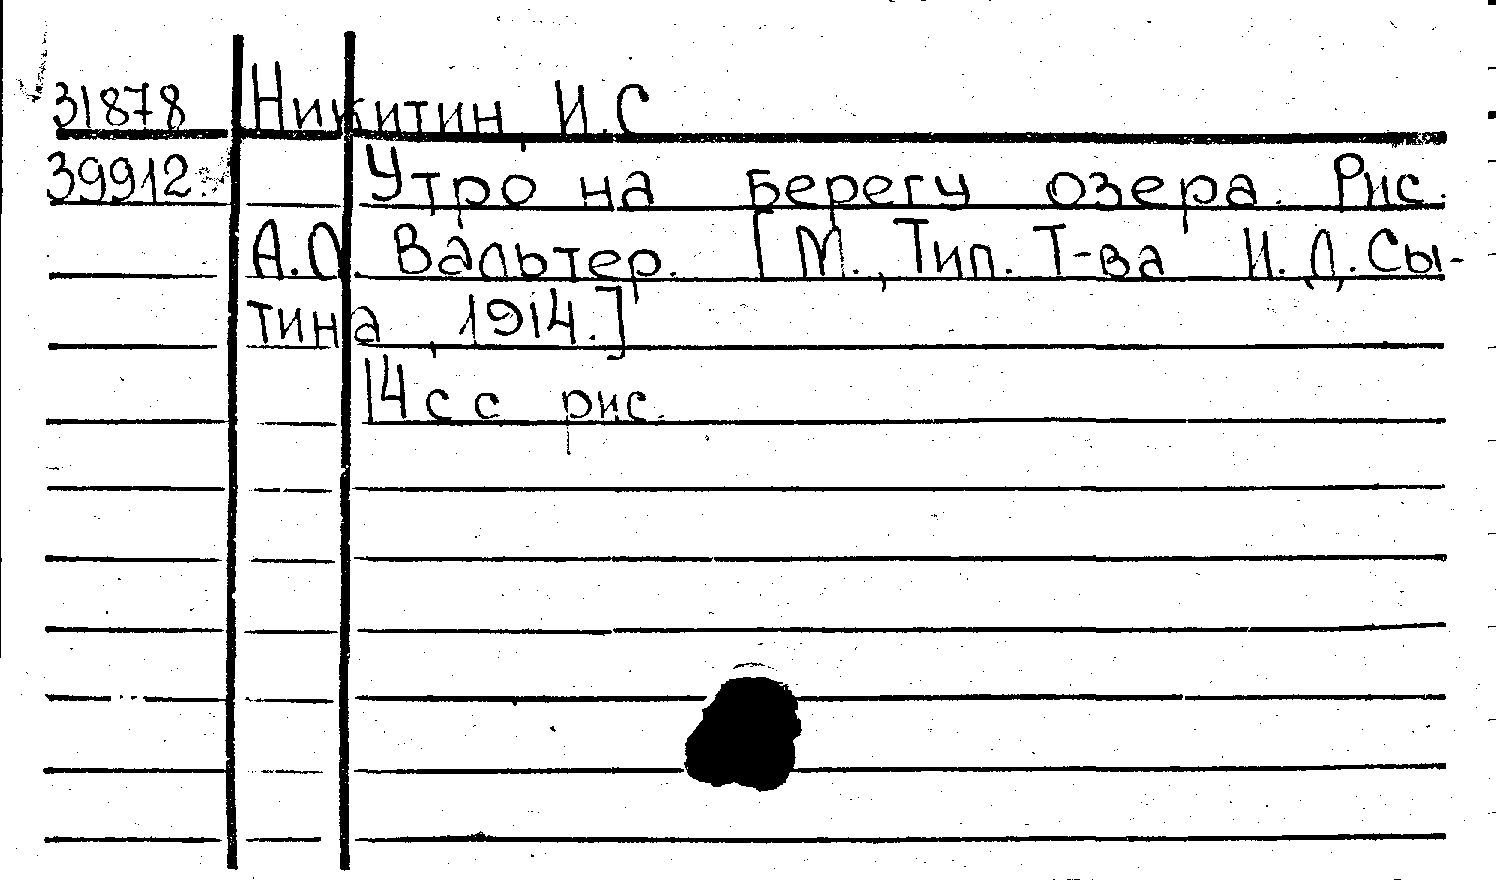 31878 Никитин, И.С
39912. Утро на берегу озера. Рис.
А.О. Вальтер. [М., Тип. Т-ва И.Д.Сы-
тина, 1914.]
14 с с рис.